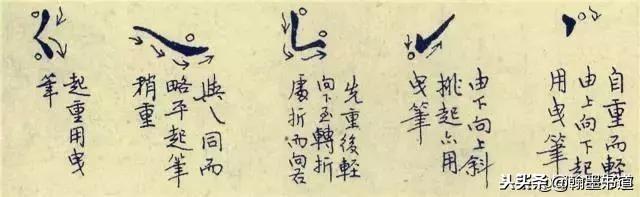 自重而輕
由上向下起
用曳筆
由下向上斜
挑起亦用
曳筆
先重後輕
向下至轉折
處折而向右
與乀同而
略平起筆
稍重
起重用曳
筆
头条@翰墨书道